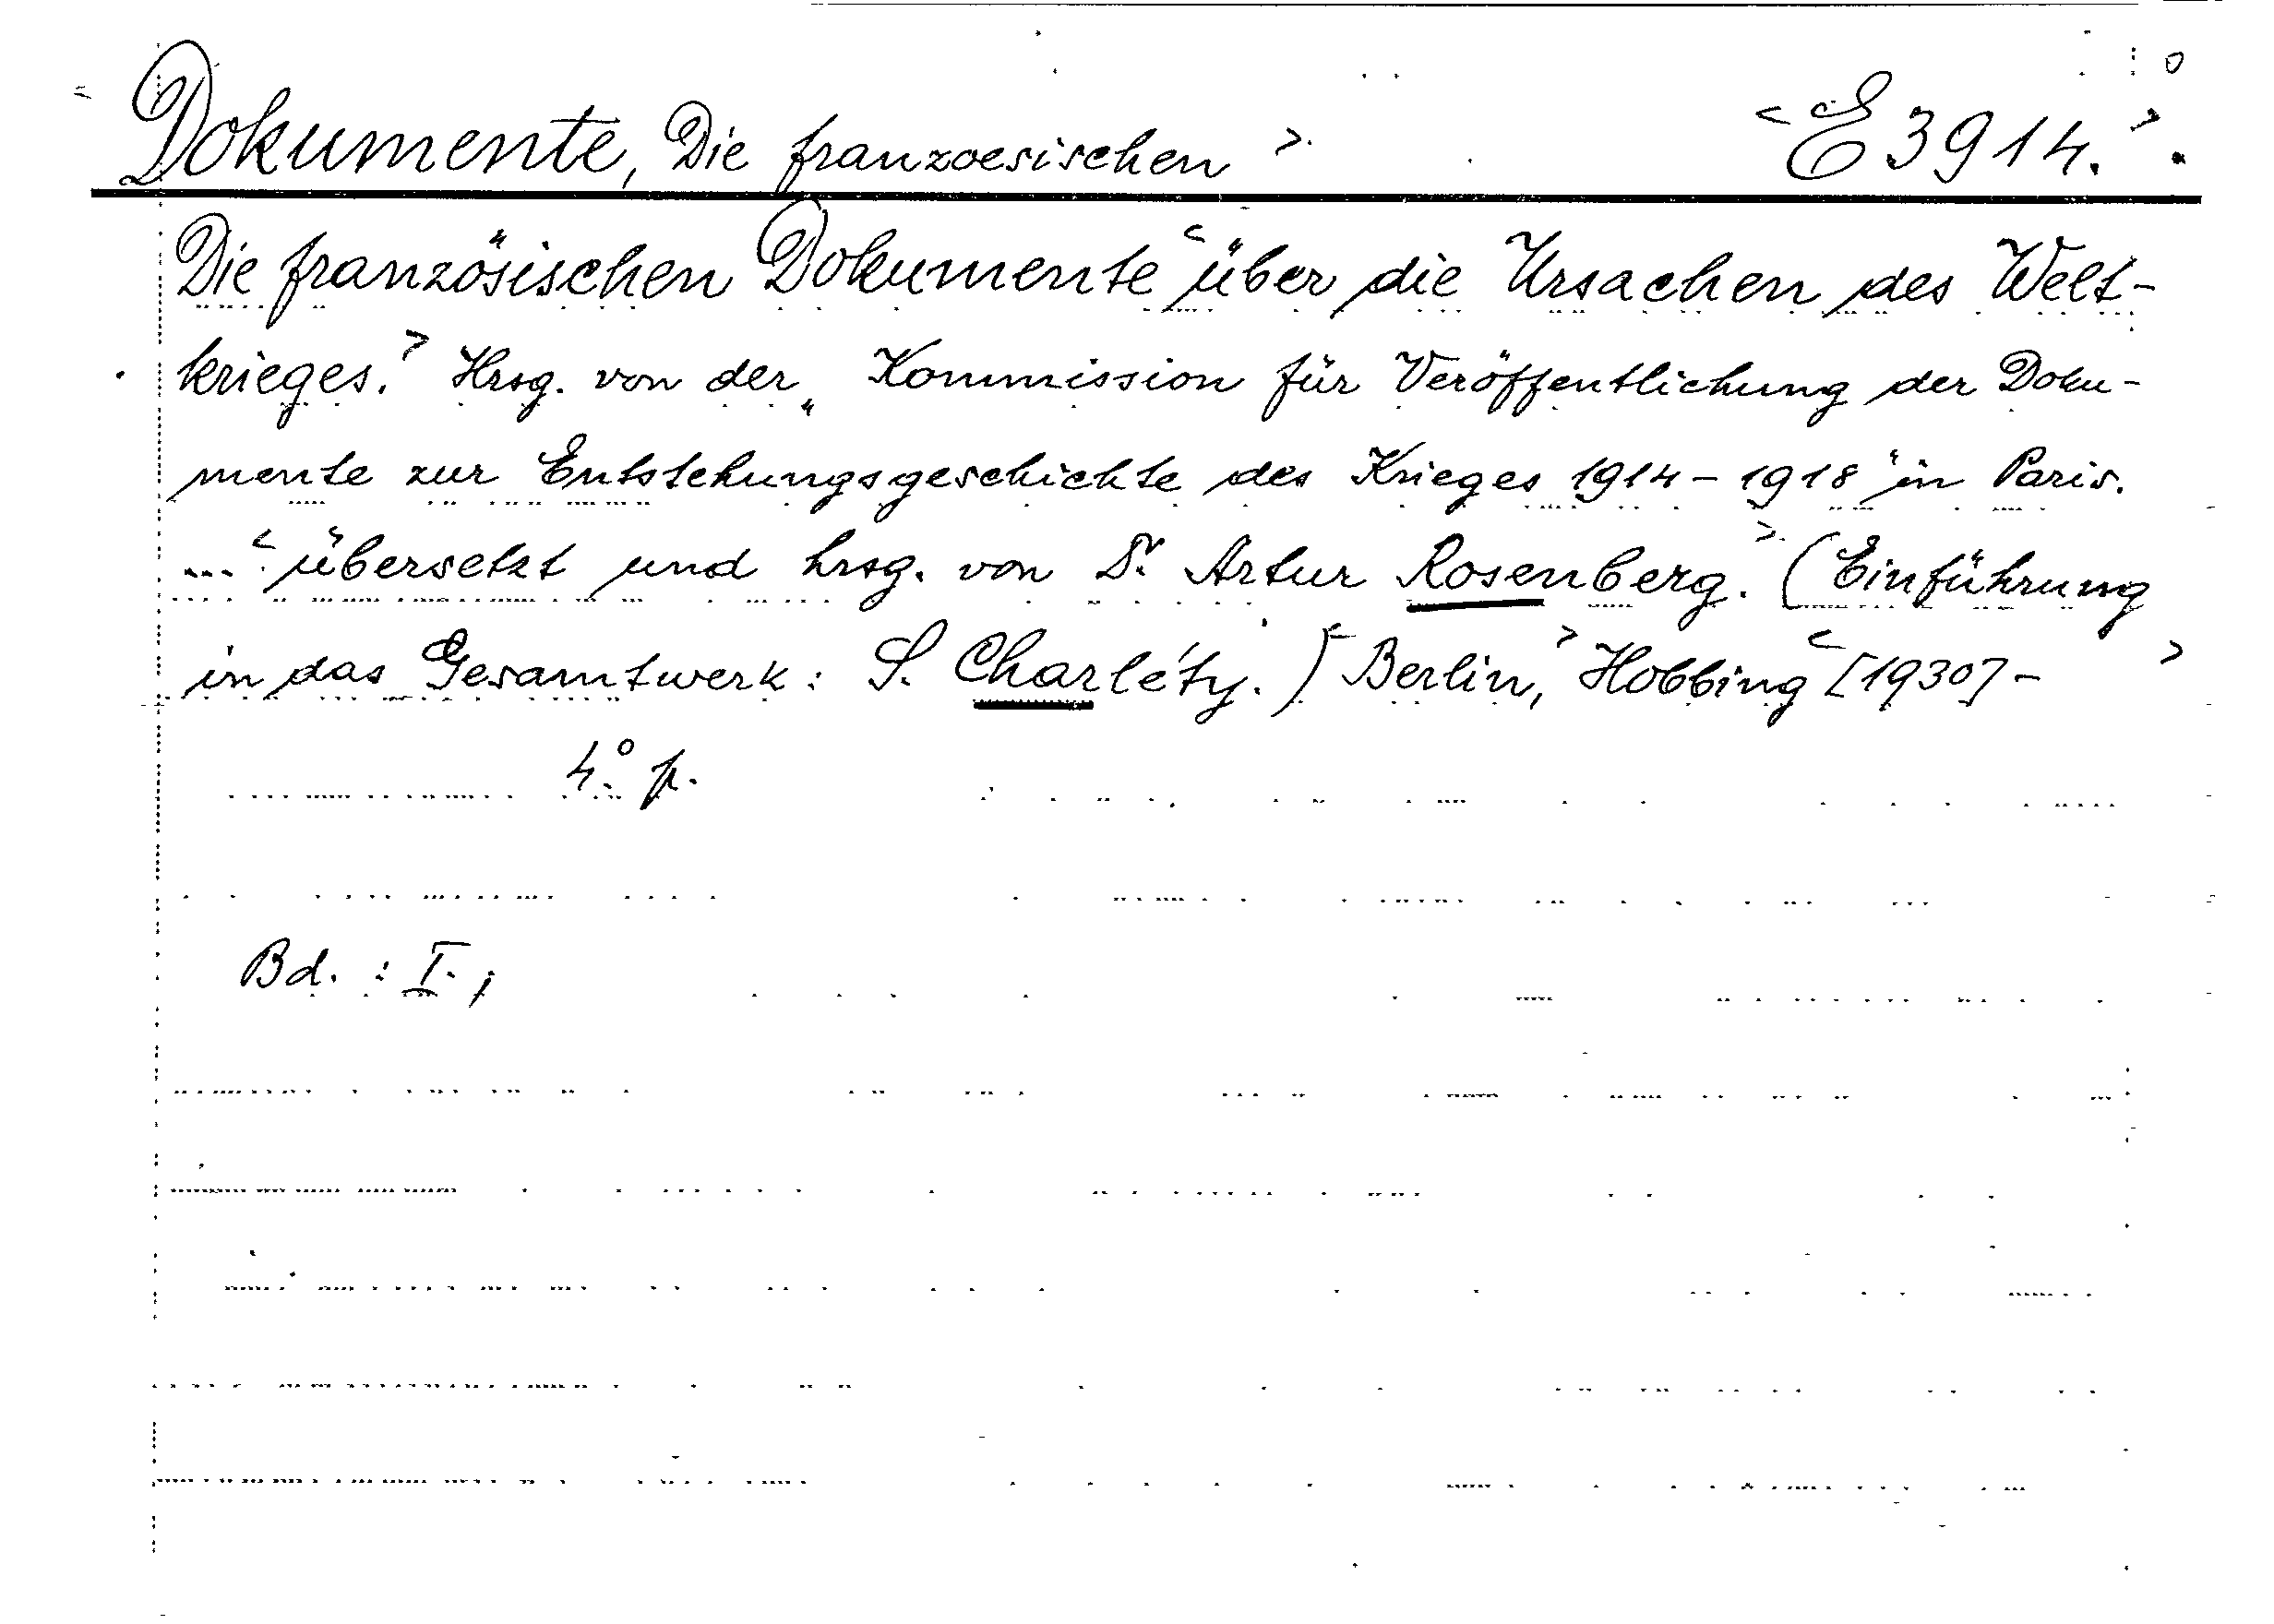 < Dokumente, Die franzoesischen >. < E 3914. >
Die französischen Dokumente < über die Ursachen des Welt-
krieges. > Hrsg. von der „Kommission für Veröffentlichung der Doku-
mente zur Entstehungsgeschichte des Krieges 1914-1918" in Paris.
... < übersetzt und hrsg. von Dr. Artur Rosenberg. > (Einführung
in das Gesamtwerk: S. Charléty.) < Berlin, > Hobbing < [1930] - >
4.° p.
Bd. : I. ;